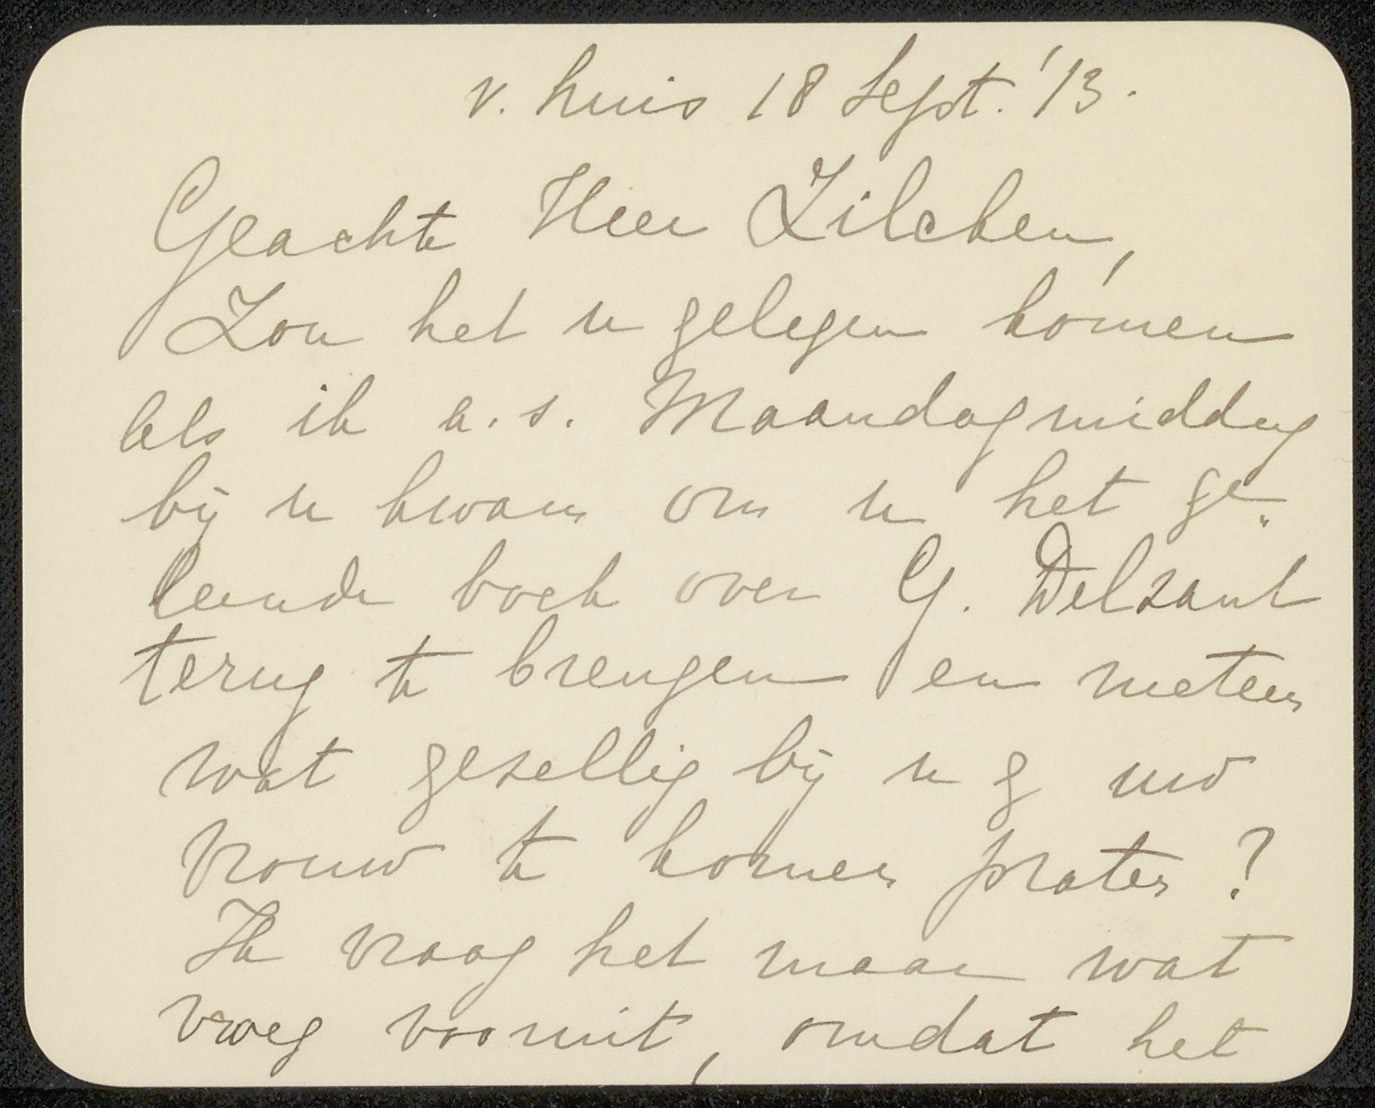 v. huis 18 Sept. '13.
Geachte Heer Zilcken,
Zou het u gelegen komen
als ik a.s. Maandagmiddag
bij u kwam om u het ge„
leende boek over G. Delzant
terug te brengen en meteen
wat gezellig bij u & uw
vrouw te komen praten?
Ik vraag het maar wat
vroeg vooruit, omdat het